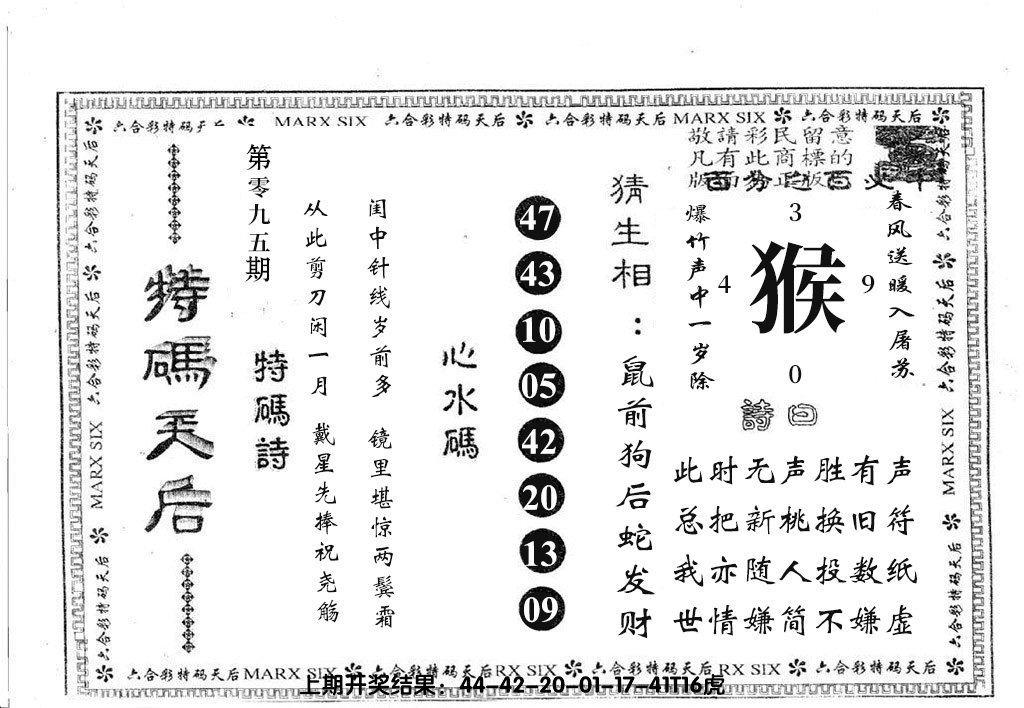 六合彩特码天后 MARX SIX 六合彩特码天后 六合彩特码天后 MARX SIX 六合彩特码天后
敬請彩民留意
凡有此商標的
版面为正版
百分之百
春风送暖入屠苏
3
4 猴 9
0
爆竹声中一岁除
詩曰
此时无声胜有声
总把新桃换旧符
我亦随人投数纸
世情嫌简不嫌虚
猜生相：鼠前狗后蛇发财
47
43
10
05
42
20
13
09
心水碼
闺中针线岁前多 镜里堪惊两鬓霜
从此剪刀闲一月 戴星先捧祝尧觞
第零九五期
特碼詩
特碼天后
六合彩特码天后 六合彩特码天后 MARX SIX 六合彩特码天后
六合彩特码天后 六合彩特码天后 MARX SIX 六合彩特码天后
六合彩特码天后 MARX SIX 六合彩特码天后 RX SIX 六合彩特码天后 RX SIX 六合彩特码天后
上期开奖结果：44-42-20-01-17-41T16虎